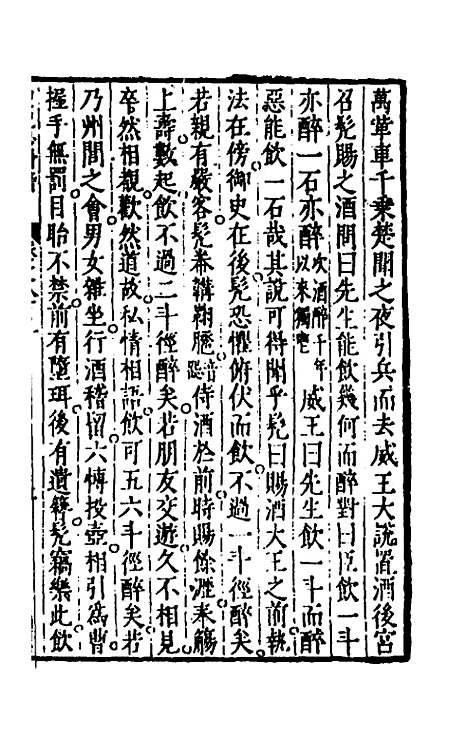 萬革車千乘楚聞之夜引兵而去威王大說置酒後宮
召髡賜之酒問曰先生能飲幾何而醉對曰臣飲一斗
亦醉一石亦醉威王曰先生飲一斗而醉
惡能飲一石哉其說可得聞乎髡曰賜酒大王之前執
法在傍御史在後髡恐懼俯伏而飲不過一斗徑醉矣
若親有嚴客髡帣韝鞠䠆侍酒於前時賜餘瀝奉觴
上壽數起飲不過二斗徑醉矣若朋友交遊久不相見
卒然相覩歡然道故私情相語飲可五六斗徑醉矣若
乃州閭之會男女雜坐行酒稽留六博投壺相引爲曹
握手無罰目眙不禁前有墮珥後有遺簪髡竊樂此飲